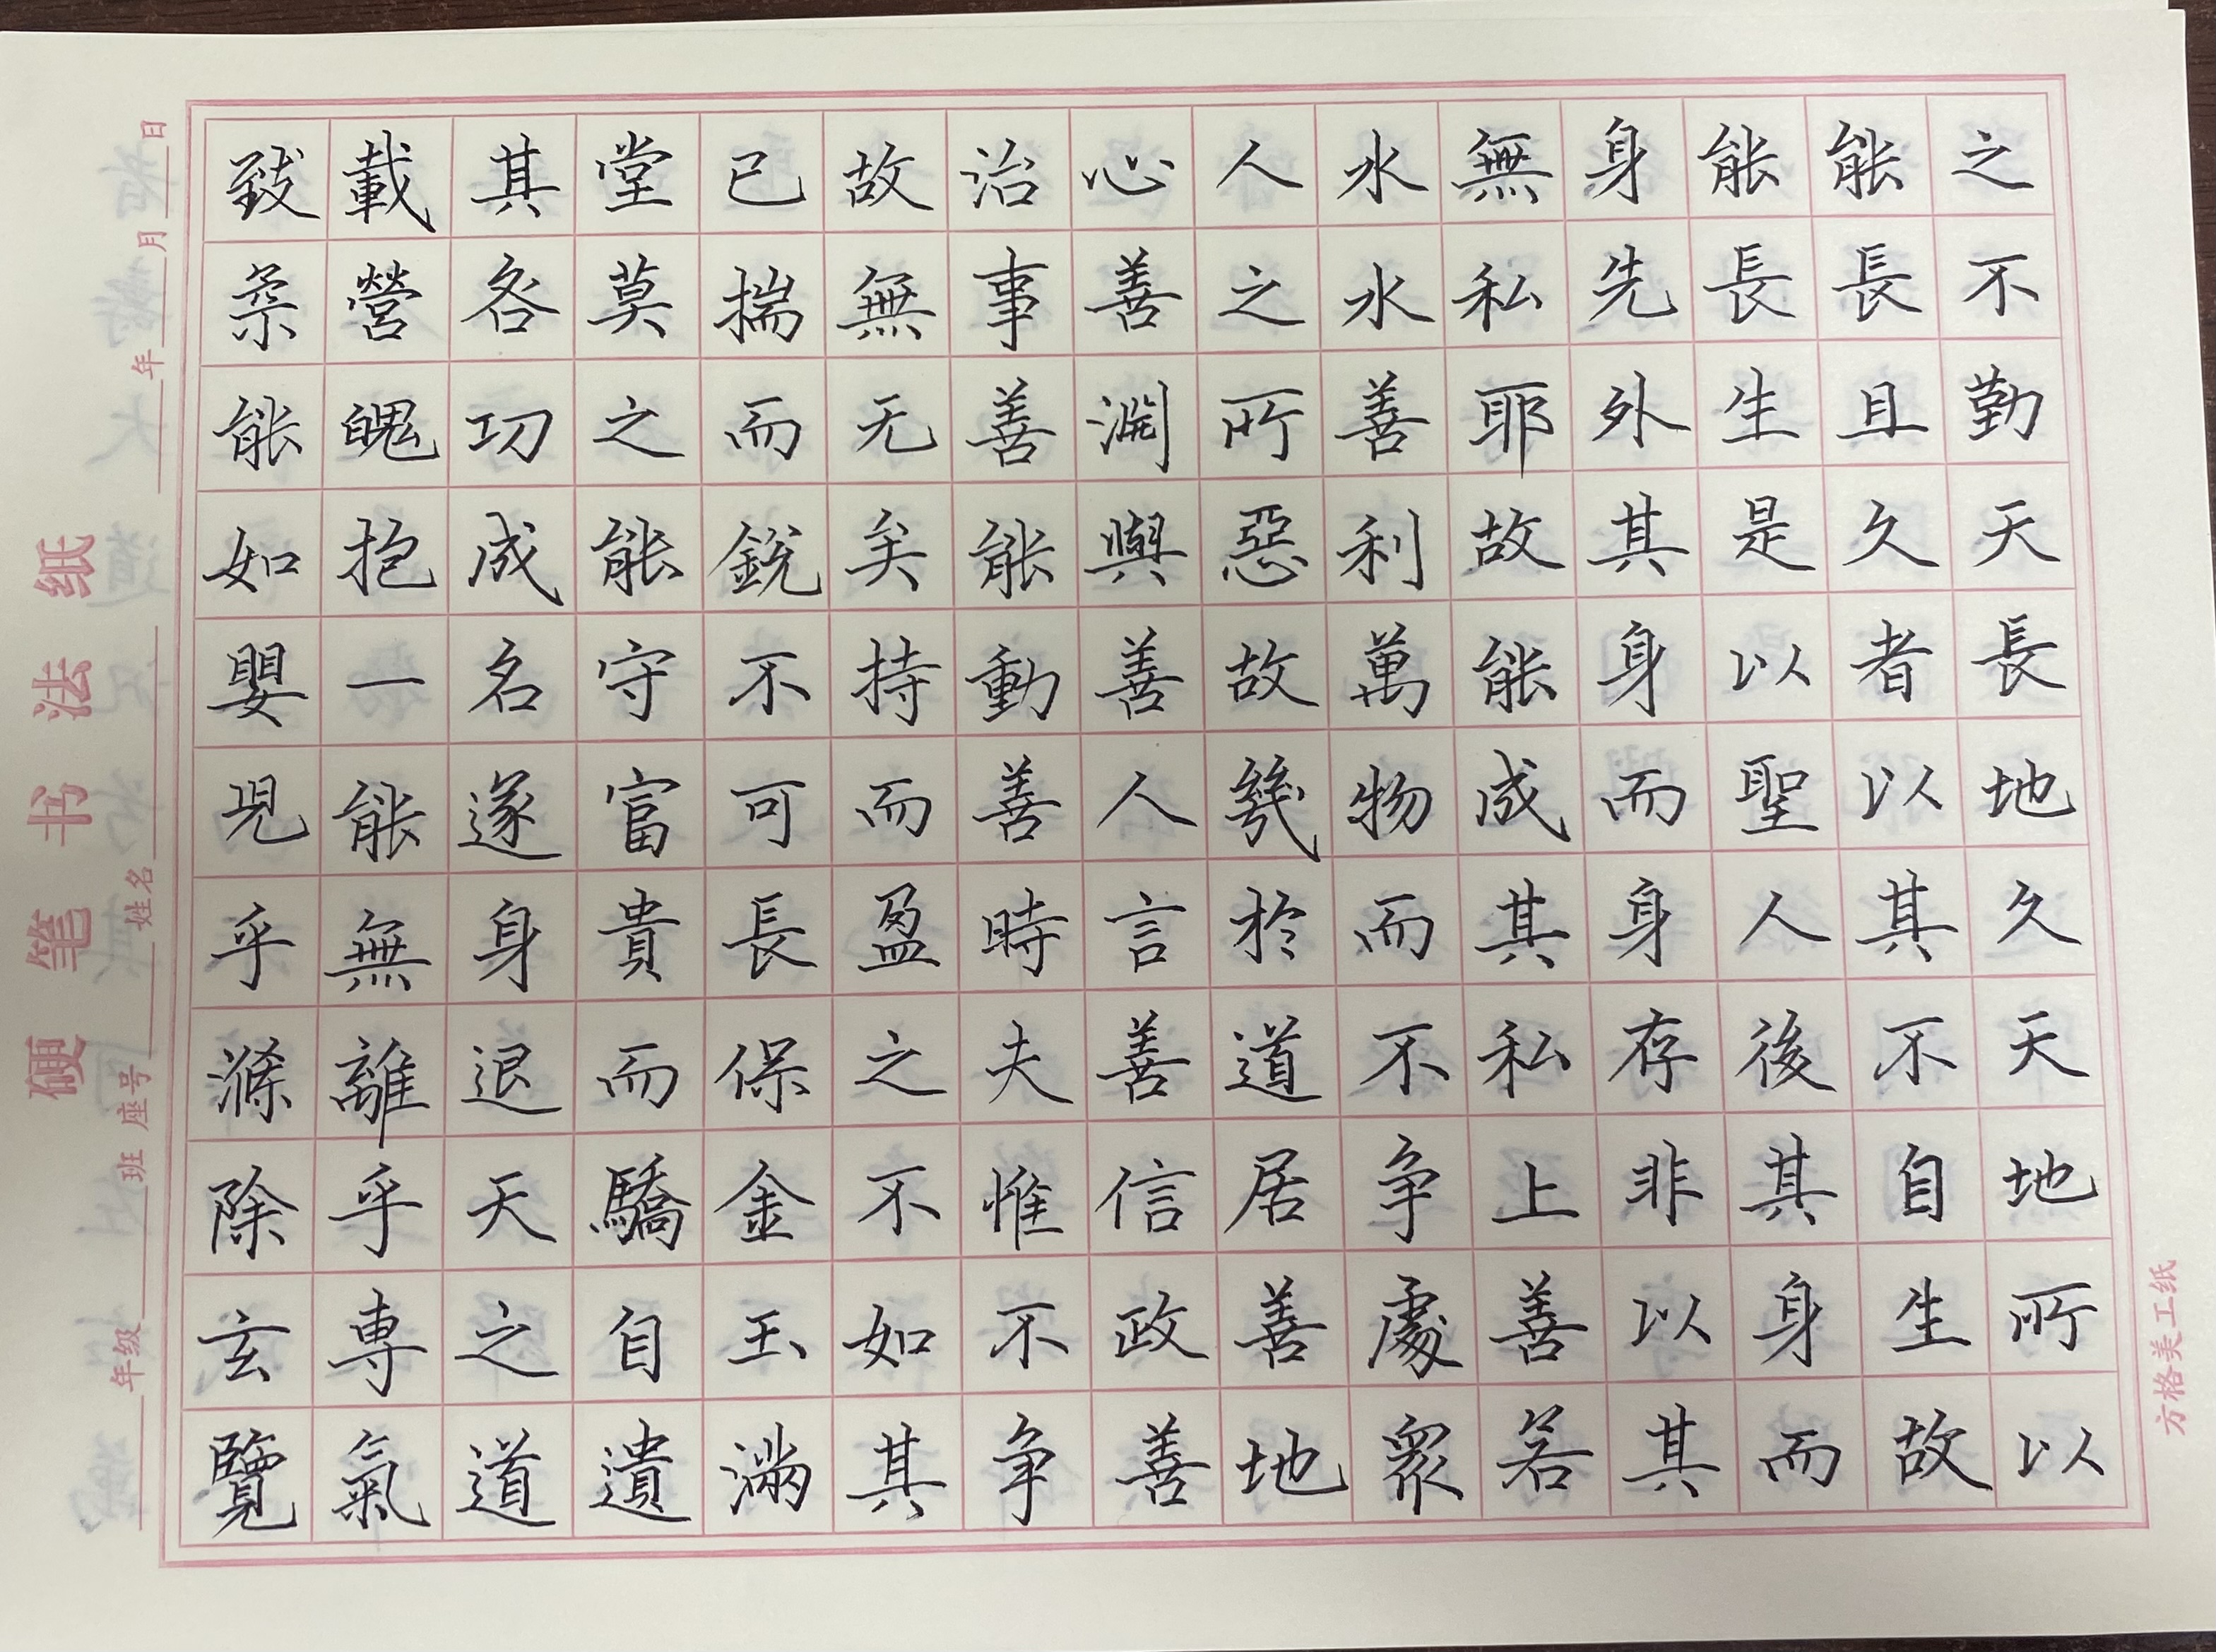 之不勤天長地久天地所以
能長且久者以其不自生故
能長生是以聖人後其身而
身先外其身而身存非以其
無私耶故能成其私上善若
水水善利萬物而不争處衆
人之所惡故幾於道居善地
心善淵與善人言善信政善
治事善能動善時夫惟不争
故無无矣持而盈之不如其
已揣而銳不可長保金玉滿
堂莫之能守富貴而驕自遺
其咎功成名遂身退天之道
載營魄抱一能無離乎專氣
致柔能如嬰兒乎滌除玄覽
硬笔书法纸
年级 班 座号 姓名 年 月 日
方格美工纸